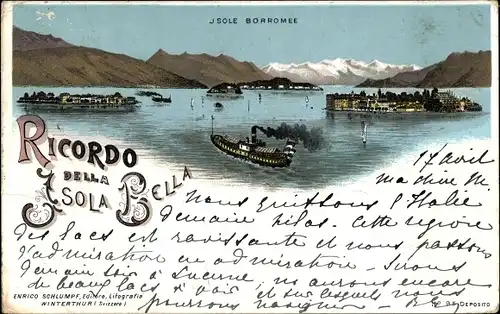 JSOLE BORROMEE
RICORDO
DELLA
ISOLA BELLA
17 avril
ma chère M.
Nous quittons l'Italie
demain hélas. Cette région
des lacs est ravissante et nous passons
d'admiration en admiration - Serons
demain soir à Lucerne, ns aurons encore
de beaux lacs à voir et sur lesquels nous
pourrons naviguer -
ENRICO SCHLUMPF, Editore, Litografia
WINTERTHUR (Svizzera)
DEPOSITO